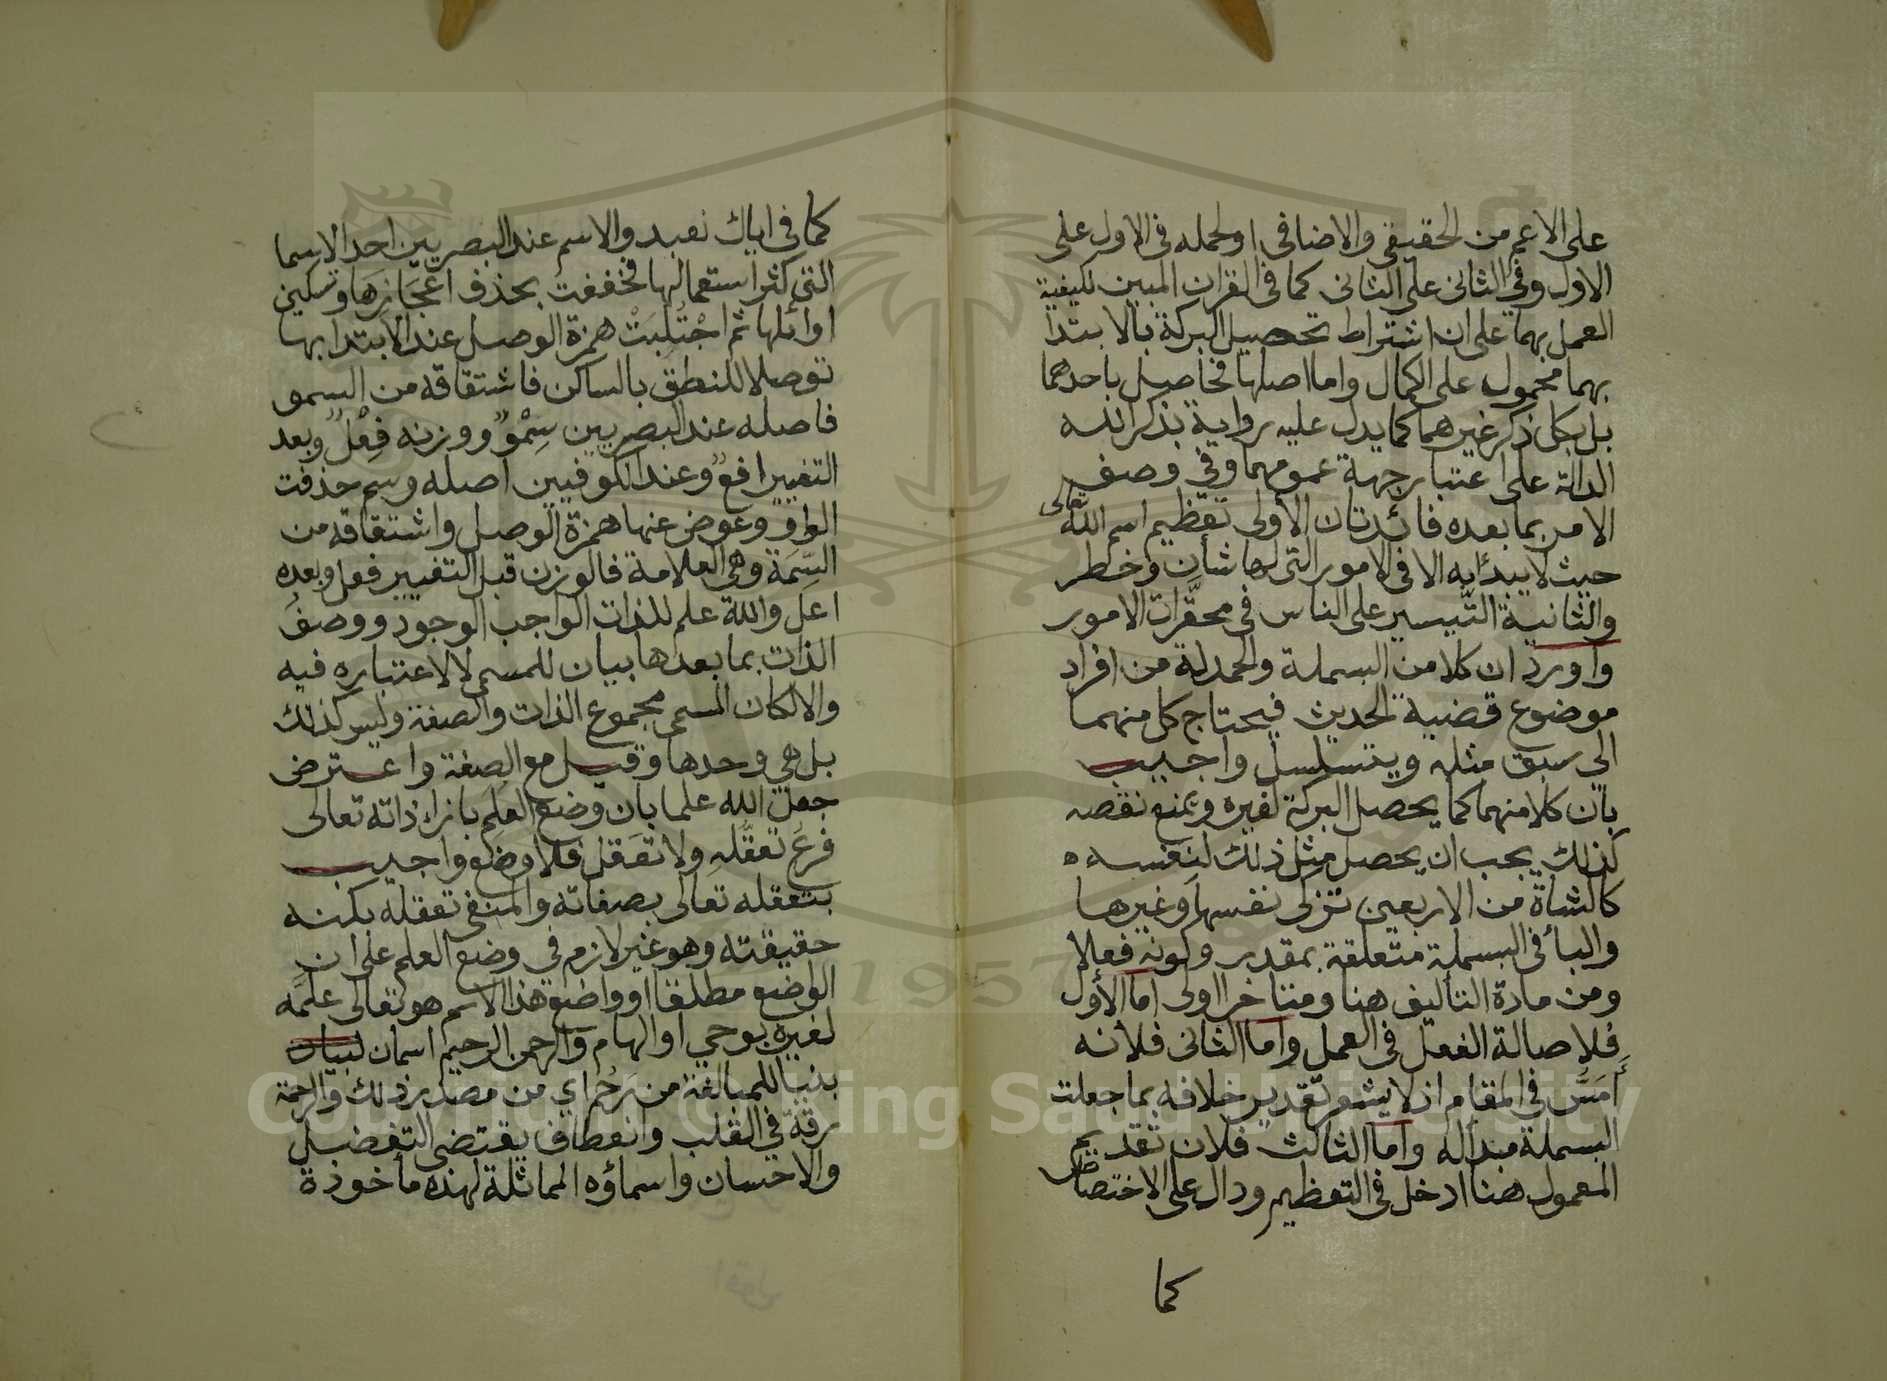 على الاعم من الحقيقي والاضافي او لحمله في الاول على
الاول وفي الثاني على الثاني كما في القران المبين لكيفية
العمل بهما على ان اشتراط تحصيل البركة بالابتدا
بهما محمول على الكمال واما اصلها فحاصل باحدهما
بل بكل ذكر غيرهما كما يدل عليه رواية بذكر الله
الدالة على اعتبار جهة عمومهما وفي وصف
الامر بما بعده فائدتان الأولى تعظيم اسم الله تعالى
حيث لا يبدأ به الا في الامور التي لها شأن وخطر
والثانية التيسير على الناس في محقرات الامور
واورد ان كلا من البسملة والحمدلة من افراد
موضوع قضية الحديث فيحتاج كل منهما
الى سبق مثله ويتسلسل واجيب
بان كلا منهما كما يحصل البركة لغيره ويمنع نقصه
كذلك يجب ان يحصل مثل ذلك لنفسه ه
كالشاة من الاربعين تزكى نفسها وغيرها
والبا في البسملة متعلقة بمقدر وكونه فعلا
ومن مادة التأليف هنا ومتاخرا اولى اما الأول
فلاصالة الفعل في العمل واما الثاني فلانه
أمس في المقام اذ لا يشعر تقدير خلافه بما جعلت
البسملة مبدأ له واما الثالث فلان تقديم
المعمول هنا ادخل في التعظيم ودال على الاختصاص
كما
كما في اياك نعبد والاسم عند البصريين احد الاسما
التي كثر استعمالها فخففت بحذف اعجازها وتسكين
اوائلها ثم اجْتُلِبَتْ همزة الوصل عند الابتدا بها
توصلا للنطق بالساكن فاشتقاقه من السمو
فاصله عند البصريين سِمْوٌ ووزنه فِعْلٌ وبعد
التغيير افعٌ وعند الكوفيين اصله وسم حذفت
الواو وعوض عنها همزة الوصل واشتقاقه من
السِّمَة وهي العلامة فالوزن قبل التغيير فعل وبعده
اعل والله علم للذات الواجب الوجود ووصف
الذات بما بعدها بيان للمسمى لا لاعتباره فيه
والا لكان المسمى مجموع الذات والصفة وليس كذلك
بل هي وحدها وقيل مع الصفة واعترض
جعل الله علما بان وضع العلم بازاء ذاته تعالى
فرع تعقُّلِه ولا تعقل فلا وضع واجيب
بتعقله تعالى بصفاته والمنفي تعقله بكنه
حقيقته وهو غير لازم في وضع العلم على ان
الواضع مطلقا او واضع هذا الاسم هو تعالى علمه
لغيره بوحي او الهام والرحمن الرحيم اسمان لبيان
بنيا للمبالغة من رَحُم اي من مصدر ذلك والرحمة
رقة في القلب وانعطاف يقتضي التفضل
والاحسان واسماؤه المماثلة لهذه مأخوذة
1957
Copyright © King Saud University